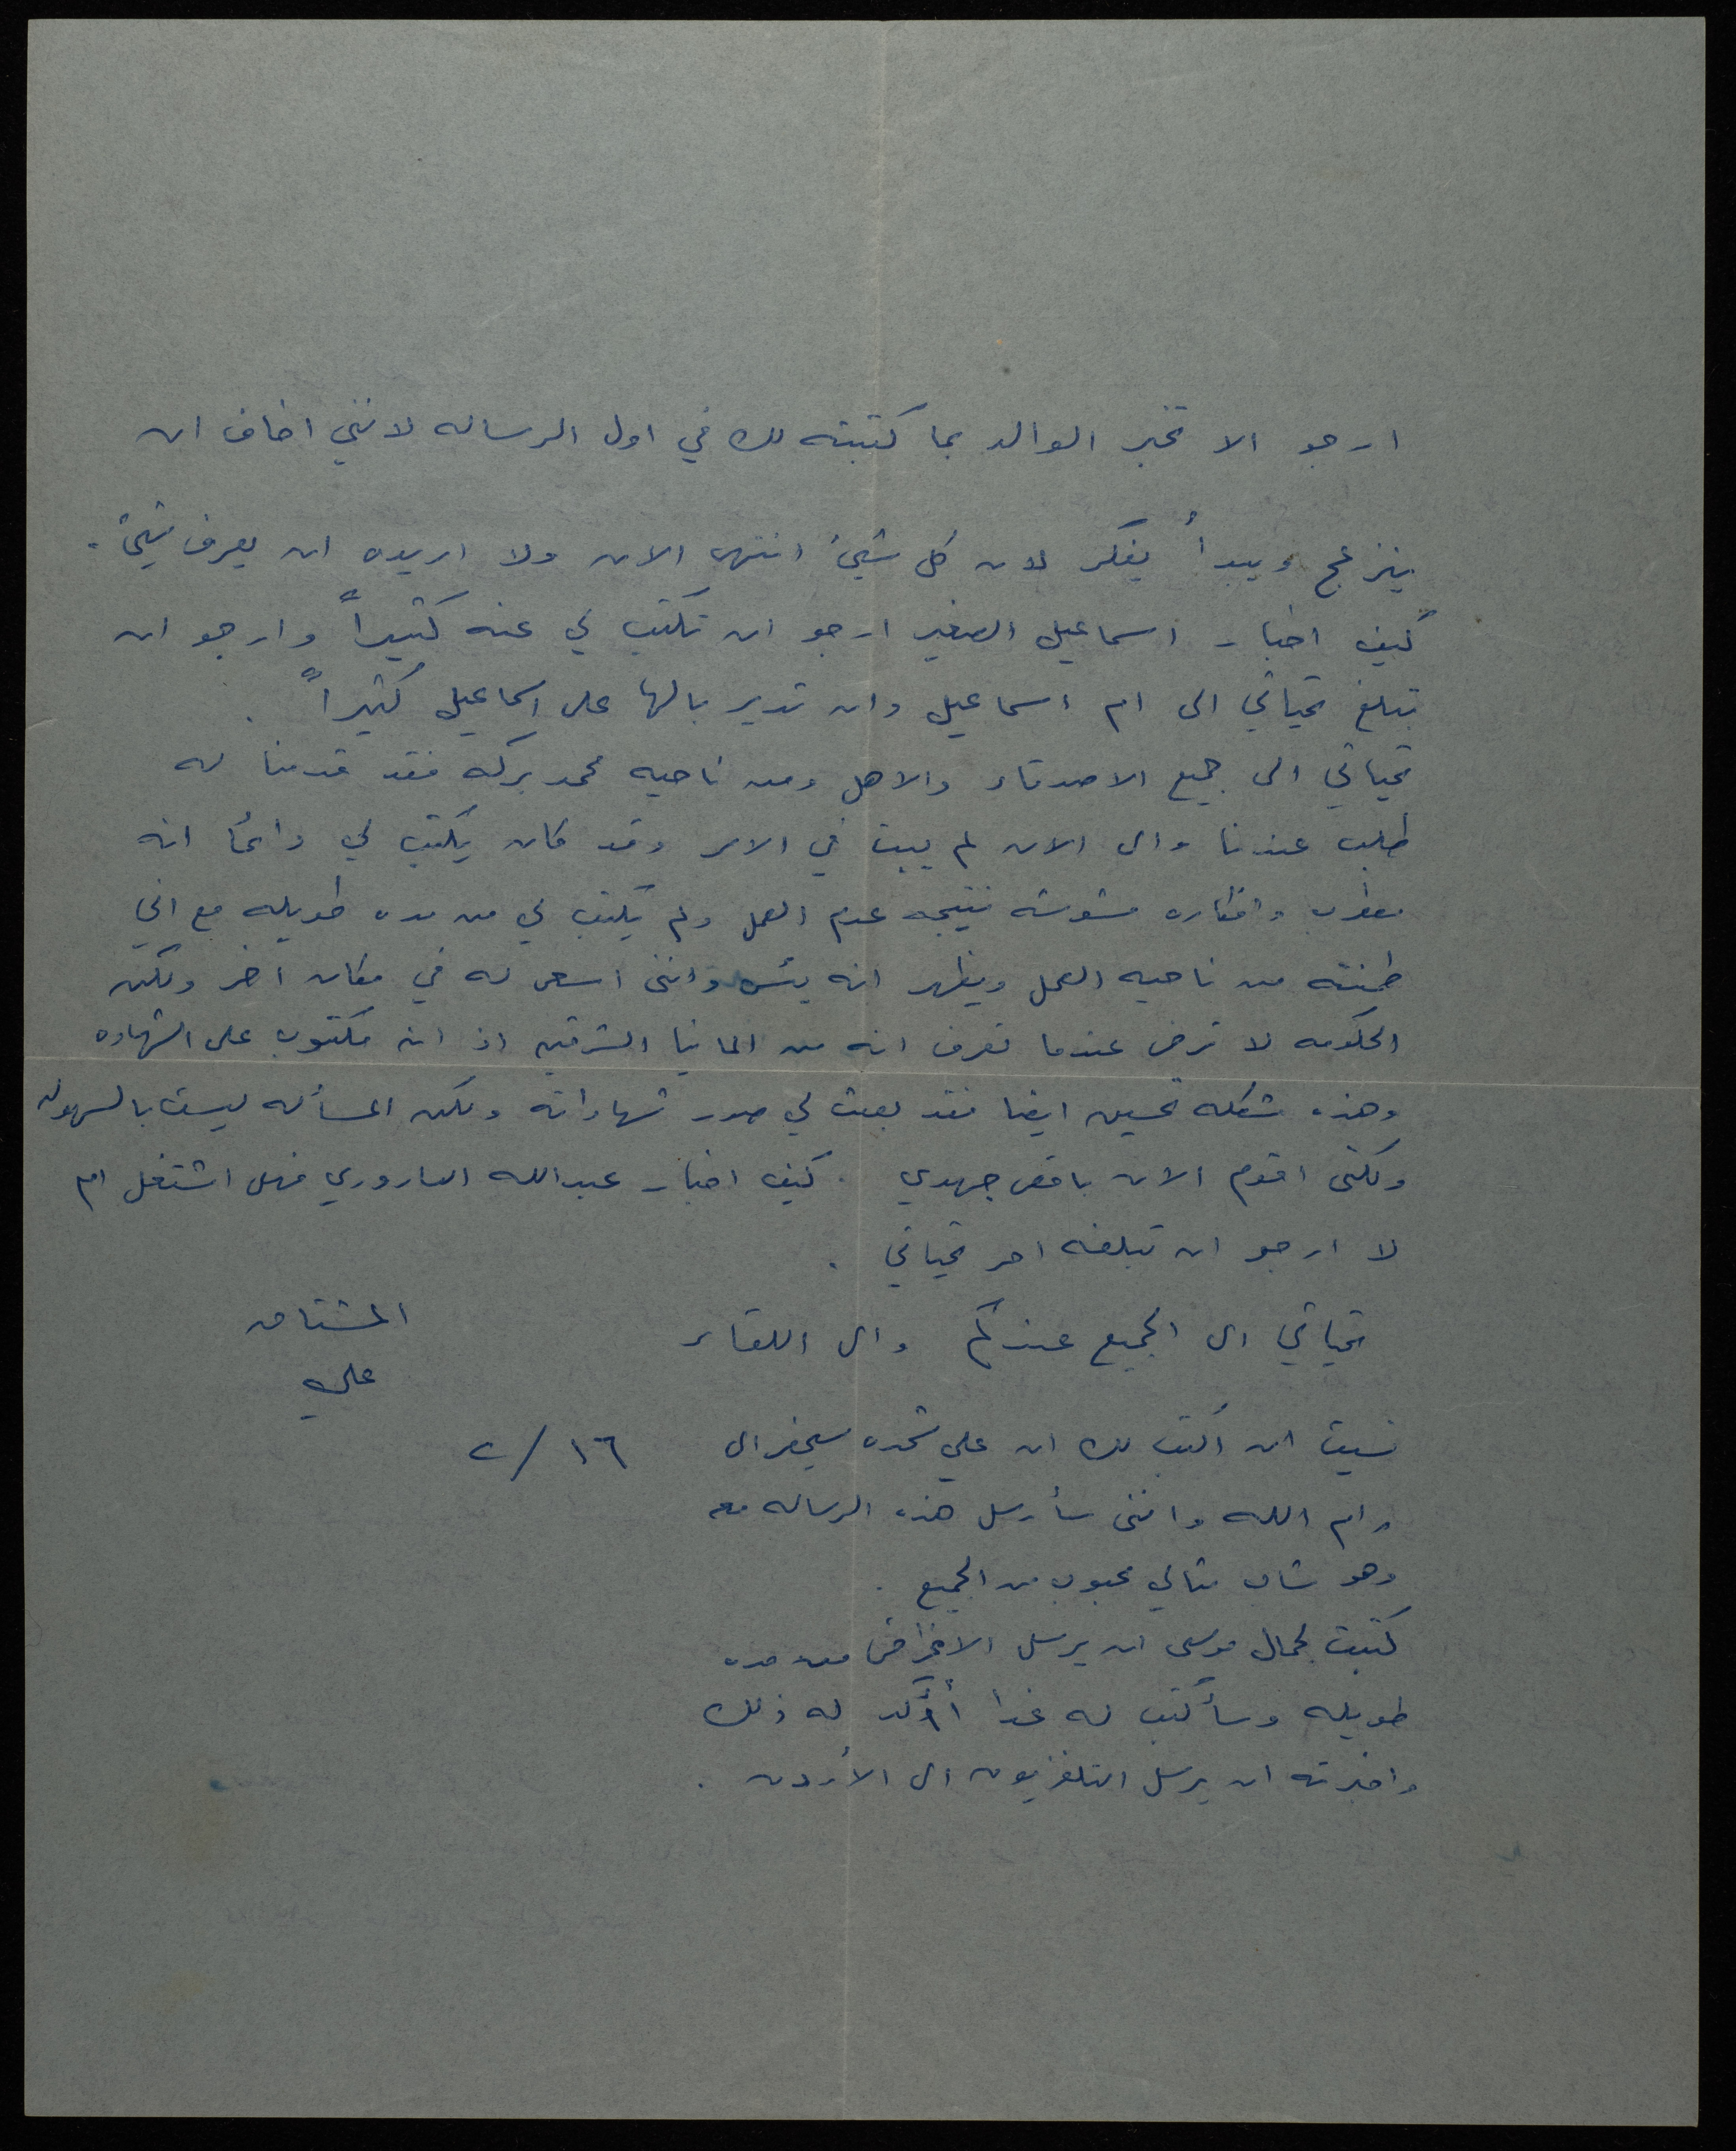 ارجو الا تخبر الوالد بما كتبته لك في اول الرساله لانني اخاف ان
ينزعج ويبدأ يفكر لان كل شيئ انتهى الان ولا اريده ان يعرف شيئ .
كيف اخبار اسماعيل الصغير ارجو ان تكتب لي عنه كثيراً وارجو ان
تبلغ تحياتي الى ام اسماعيل وان تدير بالها على اسماعيل كثيراً .
تحياتي الى جميع الاصدقاء والاهل ومن ناحيه محمد بركه فقد قدمنا له
طلب عندنا والى الان لم يبت في الامر وقد كان يكتب لي دائما انه
مضطرب وافكاره مشوشه نتيجه عدم العمل ولم يكتب لي من مده طويله مع اني
طمنته من ناحيه العمل ويظهر انه يئس وانني اسعى له في مكان اخر ولكن
الحكومه لا ترضى عندما تعرف انه من المانيا الشرقيه اذ انه مكتوب على الشهاده
وهذه مشكله تحسين ايضا فقد بعث لي صور شهاداته ولكن المسأله ليست بالسهوله
ولكني اقوم الان باقصى جهدي . كيف اخبار عبدالله العاروري فهل اشتغل ام
لا ارجو ان تبلغه احر تحياتي .
تحياتي الى الجميع عندكم والى اللقاء
المشتاق
علي
نسيت ان اكتب لك ان علي شحده سيحضر الى
١٦ / ٢
رام الله وانني سأرسل هذه الرساله معه
وهو شاب مثالي محبوب من الجميع .
كتبت لجمال موسى ان يرسل الاغراض من مده
طويله وسأكتب له غدا أؤكد له ذلك
واخبرته ان يرسل التلفزيون الى الأردن .